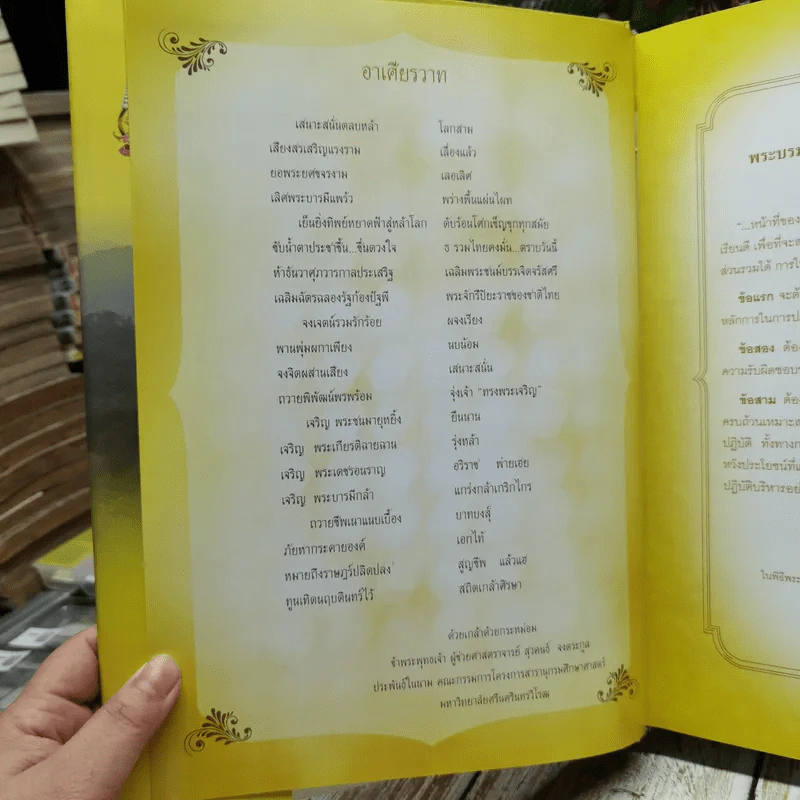 อาเศียรวาท
เสนาะสนั่นตลบหล้า โลกสาม
เสียงสรเสริญแรงราม เลื่องแล้ว
ยอพระยศขจรงาม เลอเลิศ
เลิศพระบารมีแพร้ว พร่างพื้นแผ่นไผท
เย็นยิ่งทิพย์หยาดฟ้าสู่หล้าโลก ดับร้อนโศกเข็ญขุกทุกสมัย
ซับน้ำตาประชาชื้น...ชื่นดวงใจ ธ รวมไทยคงมั่น...ตราบวันนี้
ห้าธันวาศุภวารกาลประเสริฐ เฉลิมพระชนม์บรรเจิดจรัสศรี
เฉลิมฉัตรฉลองรัฐก้องปัฐพี พระจักรีปิยะราชของชาติไทย
จงเจตน์รวมรักร้อย ผจงเรียง
พานพุ่มผกาเพียง นบน้อม
จงจิตผสานเสียง เสนาะสนั่น
ถวายพิพัฒน์พรพร้อม จุ่งเจ้า "ทรงพระเจริญ"
เจริญ พระชนมายุหยิ้ง ยืนนาน
เจริญ พระเกียรติฉายฉาน รุ่งหล้า
เจริญ พระเดชรอนราญ อริราช พ่ายเฮย
เจริญ พระบารมีกล้า แกร่งกล้าเกริกไกร
ถวายชีพเนาแนบเบื้อง บาทบงสุ์
ภัยหากระคายองค์ เอกไท้
หมายถึงราษฎร์ปลิดปลง สูญชีพ แล้วแฮ
ทูนเทิดนฤบดินทร์ไว้ สถิตเกล้าศิรษา
ด้วยเกล้าด้วยกระหม่อม
ข้าพระพุทธเจ้า ผู้ช่วยศาสตราจารย์ สุวคนธ์ จงตระกูล
ประพันธ์ในนาม คณะกรรมการโครงการสารานุกรมศึกษาศาสตร์
มหาวิทยาลัยศรีนครินทรวิโรฒ
พระบรม
"...หน้าที่ของ
เรียนดี เพื่อที่จะส
ส่วนรวมได้ การใ
ข้อแรก จะต้
หลักการในการป
ข้อสอง ต้อง
ความรับผิดชอบ
ข้อสาม ต้อง
ครบถ้วนเหมาะส
ปฏิบัติ ทั้งทางก
หวังประโยชน์ที่แ
ปฏิบัติบริหารอย่
ในพิธีพระ